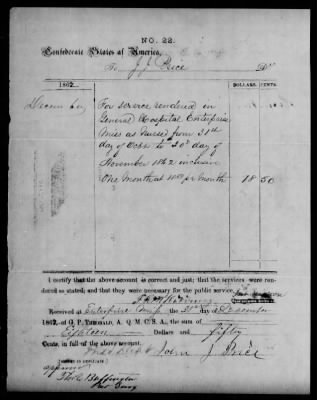 NO. 22.
Confederate States of America,
To J. J. Price Dr.
1862. DOLLARS. CENTS.
For service rendered in
General Hospital Enterprise
Miss as Nurse from 31st
day of Octr to 30th day of
November 1862 inclusive
One Month at per Month 18 50
I certify that the above account is correct and just; that the services were ren-
dered as stated; and that they were necessary for the public service,
Received at Enterprise Miss the 31st of December
1862, of G. P. THEOBALD, A. Q. M. C. S. A., the sum of
Eighteen Dollars and Fifty
Cents, in full of the above account.
John J Price
(SIGNED IN DUPLICATE.)
approved